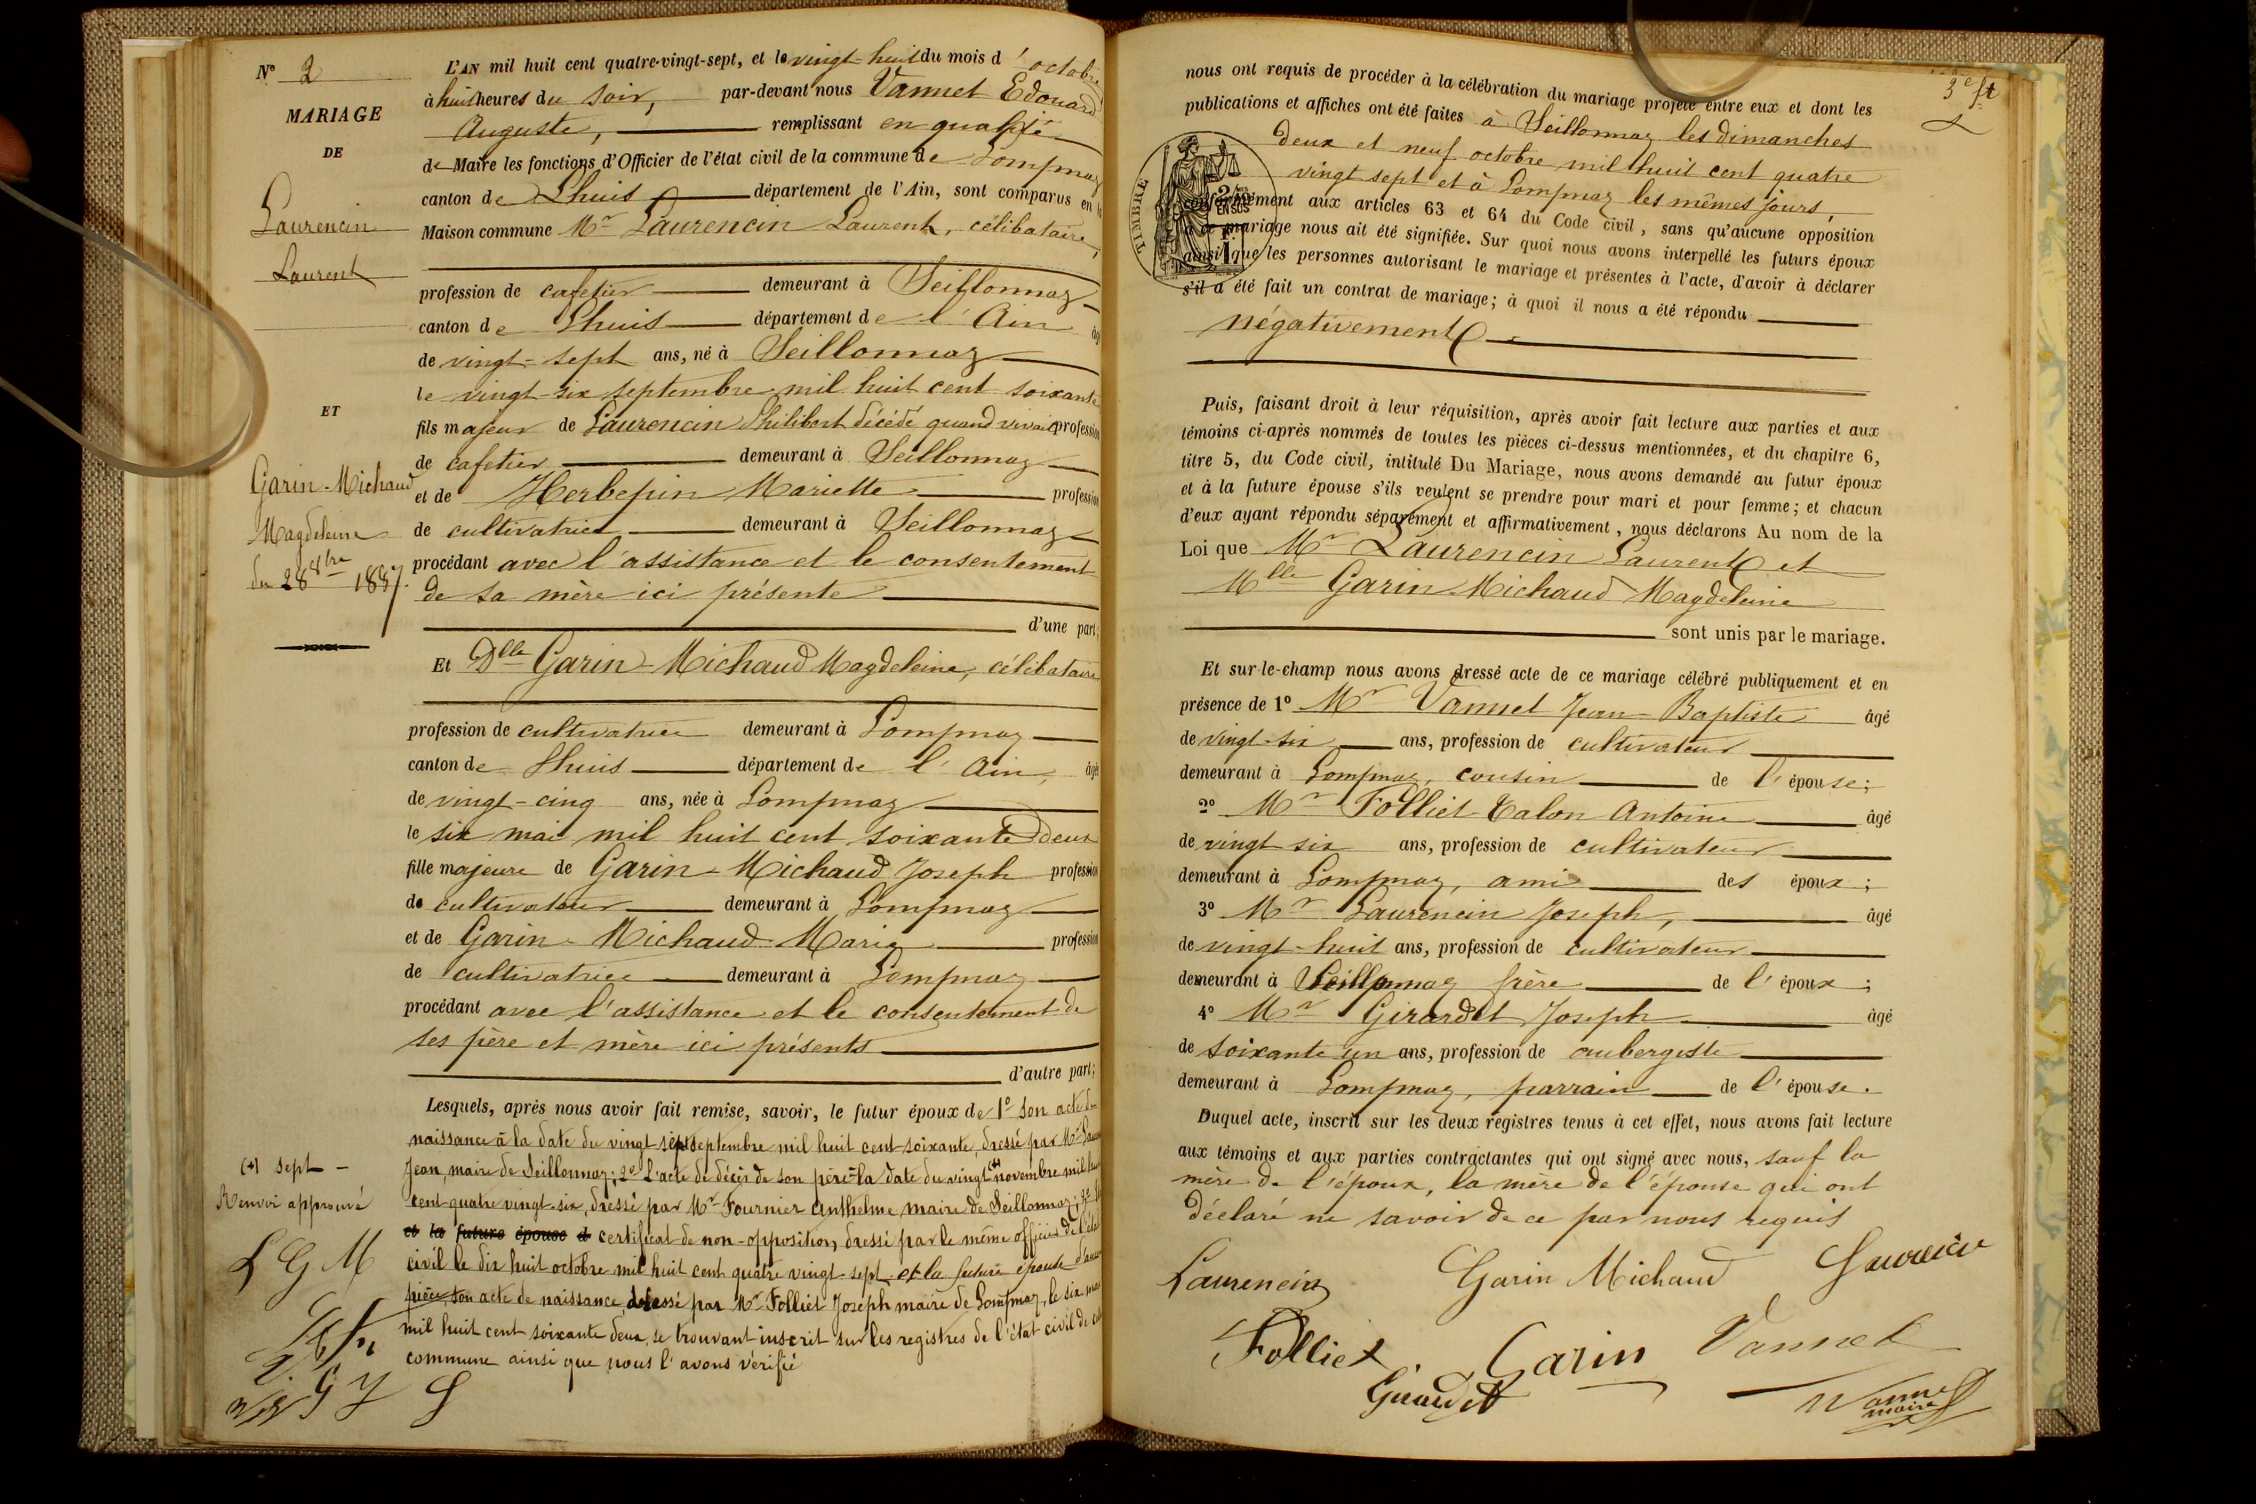 N° 2
MARIAGE
DE
Laurencin
Laurent
ET
Garin-Michaud
Magdeleine
du 28 8bre 1887.
(+) sept –
Renvoi approuvé
L G M
L'AN mil huit cent quatre-vingt-sept, et le vingt-huit du mois d'octobre
à huit heures du soir, par-devant nous Vannet Edouard
Auguste, remplissant en qualité
de Maire les fonctions d'Officier de l'état civil de la commune de Lompnaz
canton de Lhuis département de l'Ain, sont comparus en la
Maison commune Mr Laurencin Laurent, célibataire,
profession de cafetier demeurant à Seillonnaz
canton de Lhuis département de l'Ain âgé
de vingt-sept ans, né à Seillonnaz
le vingt-six septembre mil huit cent soixante
fils majeur de Laurencin Philibert décédé quand vivait profession
de cafetier demeurant à Seillonnaz
et de Herbepin Mariette profession
de cultivatrice demeurant à Seillonnaz
procédant avec l'assistance et le consentement
de sa mère ici présente
d'une part;
Et Dlle Garin-Michaud Magdeleine, célibataire
profession de cultivatrice demeurant à Lompnaz
canton de Lhuis département de l'Ain, âgée
de vingt-cinq ans, née à Lompnaz
le six mai mil huit cent soixante deux
fille majeure de Garin-Michaud Joseph profession
de cultivateur demeurant à Lompnaz
et de Garin-Michaud Marie profession
de cultivatrice demeurant à Lompnaz
procédant avec l'assistance et le consentement de
ses père et mère ici présents
d'autre part;
Lesquels, après nous avoir fait remise, savoir, le futur époux de 1° son acte de
naissance à la date du vingt sept septembre mil huit cent soixante, dressé par Mr
Jean, maire de Seillonnaz; 2° L'acte de décès de son père à la date du vingt (+) novembre mil huit
cent quatre vingt-six, dressé par Mr Fournier Anthelme maire de Seillonnaz; 3°
et la future épouse d certificat de non-opposition, dressé par le même officier de l'état
civil le dix huit octobre mil huit cent quatre vingt-sept et la future épouse d'aucune
pièce, son acte de naissance, dressé par Mr Folliet Joseph maire de Lompnaz, le six mai
mil huit cent soixante deux, se trouvant inscrit sur les registres de l'état civil de cette
commune ainsi que nous l'avons vérifié
3e ft
nous ont requis de procéder à la célébration du mariage projeté entre eux et dont les
publications et affiches ont été faites à Seillonnaz les dimanches
deux et neuf octobre mil huit cent quatre
vingt sept et à Lompnaz les mêmes jours,
conformément aux articles 63 et 64 du Code civil, sans qu'aucune opposition
à ce mariage nous ait été signifiée. Sur quoi nous avons interpellé les futurs époux
ainsi que les personnes autorisant le mariage et présentes à l'acte, d'avoir à déclarer
s'il a été fait un contrat de mariage; à quoi il nous a été répondu
négativement
TIMBRE
EN SUS
Puis, faisant droit à leur réquisition, après avoir fait lecture aux parties et aux
témoins ci-après nommés de toutes les pièces ci-dessus mentionnées, et du chapitre 6,
titre 5, du Code civil, intitulé Du Mariage, nous avons demandé au futur époux
et à la future épouse s'ils veulent se prendre pour mari et pour femme; et chacun
d'eux ayant répondu séparément et affirmativement, nous déclarons Au nom de la
Loi que Mr Laurencin Laurent et
Mlle Garin Michaud Magdeleine
sont unis par le mariage.
Et sur-le-champ nous avons dressé acte de ce mariage célébré publiquement et en
présence de 1° Mr Vannet Jean-Baptiste âgé
de vingt-six ans, profession de cultivateur
demeurant à Lompnaz, cousin de l'épouse;
2° Mr Folliet-Talon Antoine âgé
de vingt six ans, profession de cultivateur
demeurant à Lompnaz, ami des époux;
3° Mr Laurencin Joseph, âgé
de vingt-huit ans, profession de cultivateur
demeurant à Seillonnaz frère de l'époux;
4° Mr Girardet Joseph âgé
de soixante un ans, profession de aubergiste
demeurant à Lompnaz, parrain de l'épouse.
Duquel acte, inscrit sur les deux registres tenus à cet effet, nous avons fait lecture
aux témoins et aux parties contractantes qui ont signé avec nous, sauf la
mère de l'époux, la mère de l'épouse qui ont
déclaré ne savoir de ce par nous requis
Laurencin Garin Michaud Laurencin
Folliet Garin Vannet
Girardet Vannet
maire